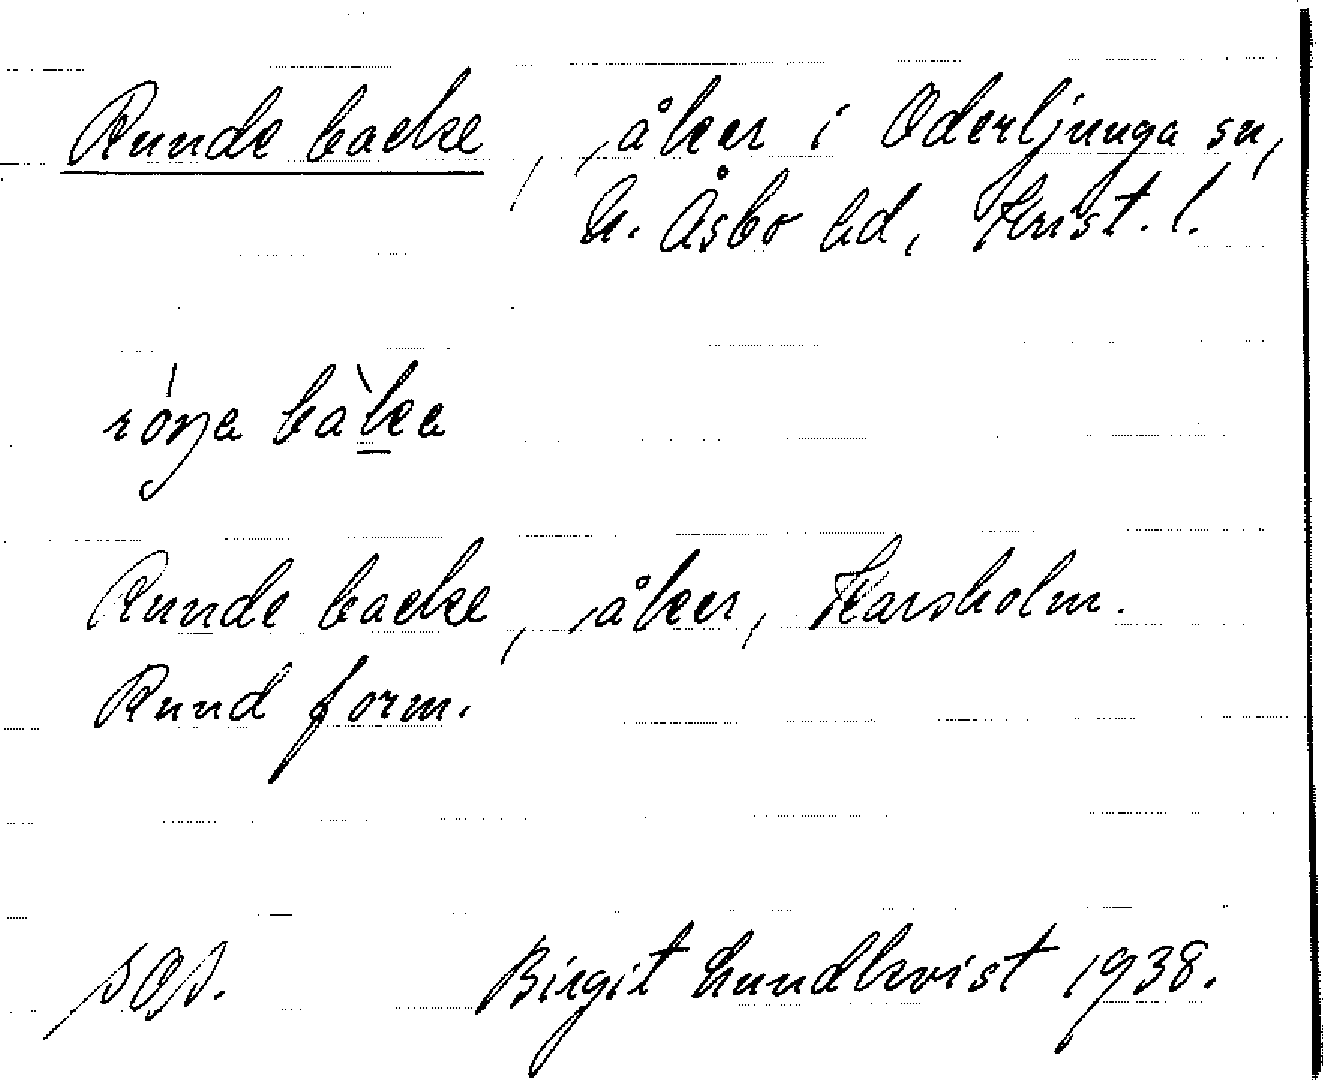 Runde backe, åker i Oderljunga sn,
N. Åsbo hd, Krist. l.
Runde backe, åker, Karsholm.
Rund form.
Birgit Lundkvist 1938.